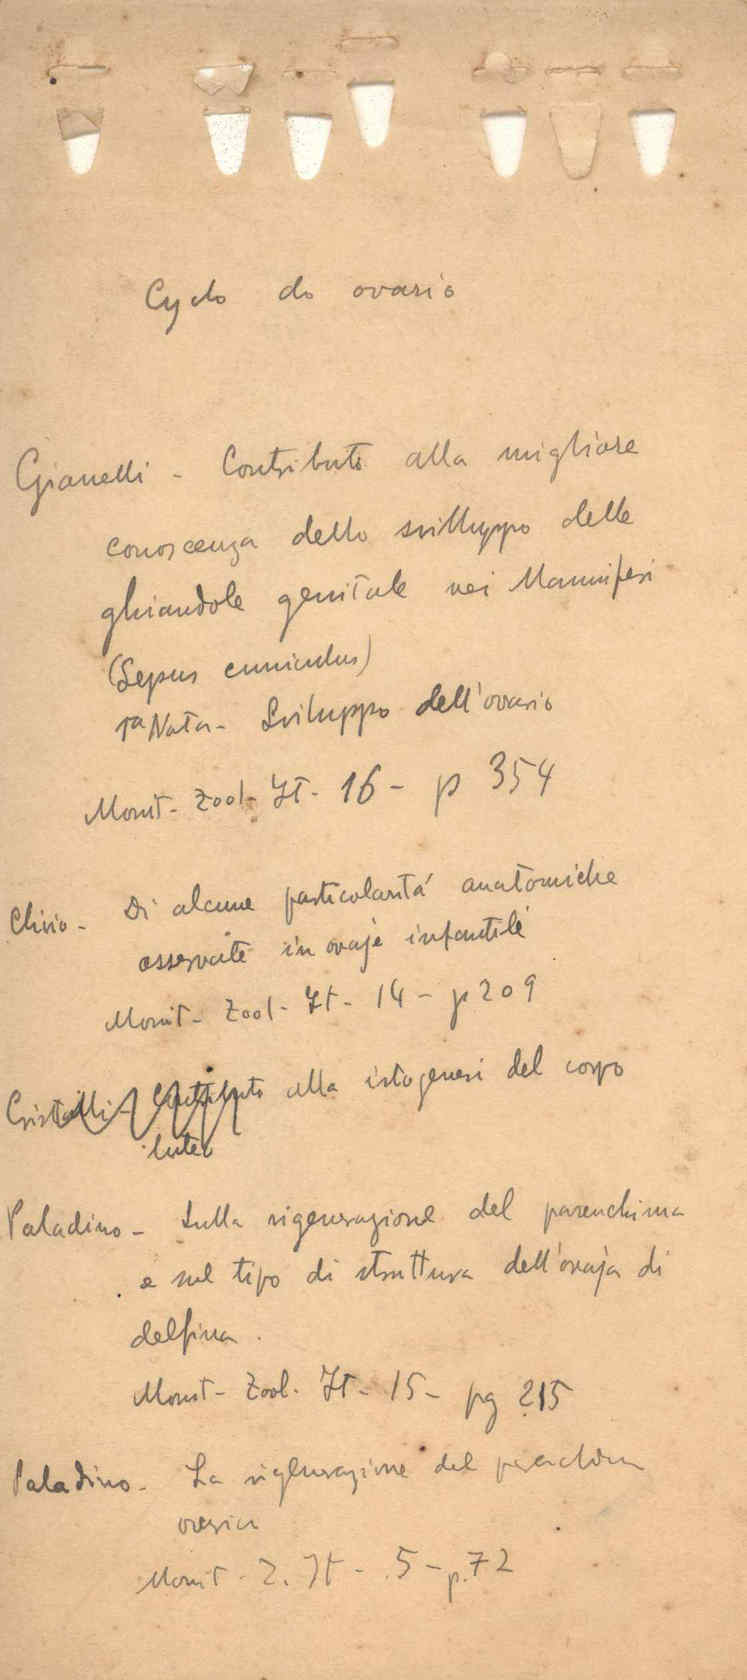 Cyclo do ovario
Gianelli - Contributo alla migliore
conoscenza dello svilluppo delle
ghiandole genitale nei Mammiferi
(Lepus cuniculus)
1a Nota - Sviluppo dell'ovario
Monit - Zool - It - 16 - p 354
Clivio - Di alcune particolaritá anatomiche
osservate in ovaje infantile
Monit - Zool - It - 14 - p 209
Cristalli - Contributo alla istogenesi del corpo
luteo
Paladino - Sulla rigenerazione del parenchima
e sul tipo di struttura dell'ovaja di
delfina.
Monit - Zool. It - 15 - pg 215
Paladino - La rigenerazione del parenchima
ovarico
Monit - Z. It - 5 - p. 72